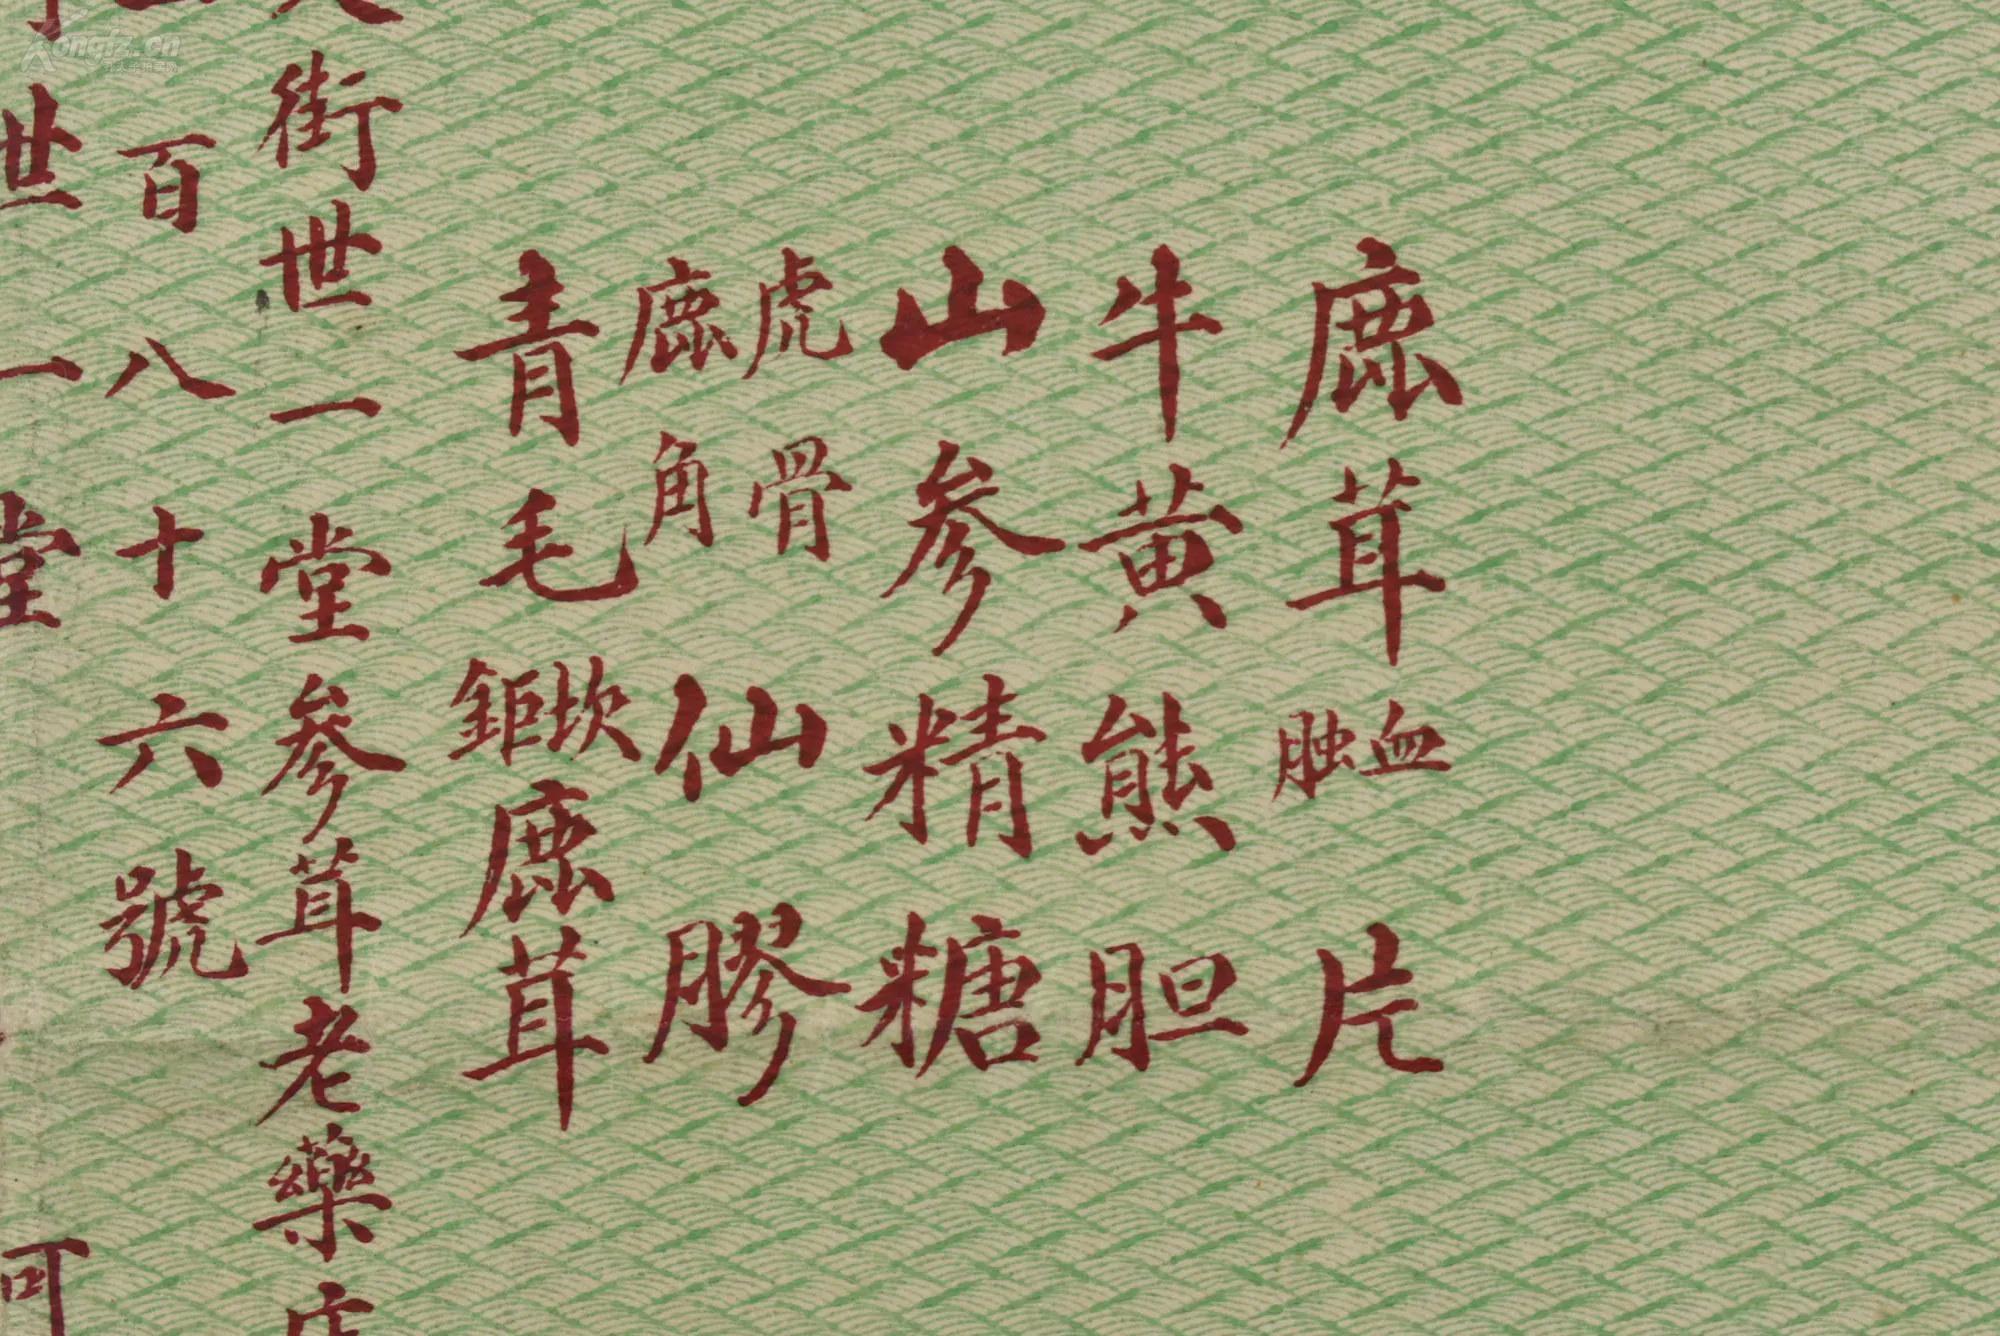 鹿茸血胦片
牛黄熊胆
山参精糖
虎骨鹿角仙膠
青毛坎鉅鹿茸
街世一堂参茸老藥店
百八十六號
世一堂